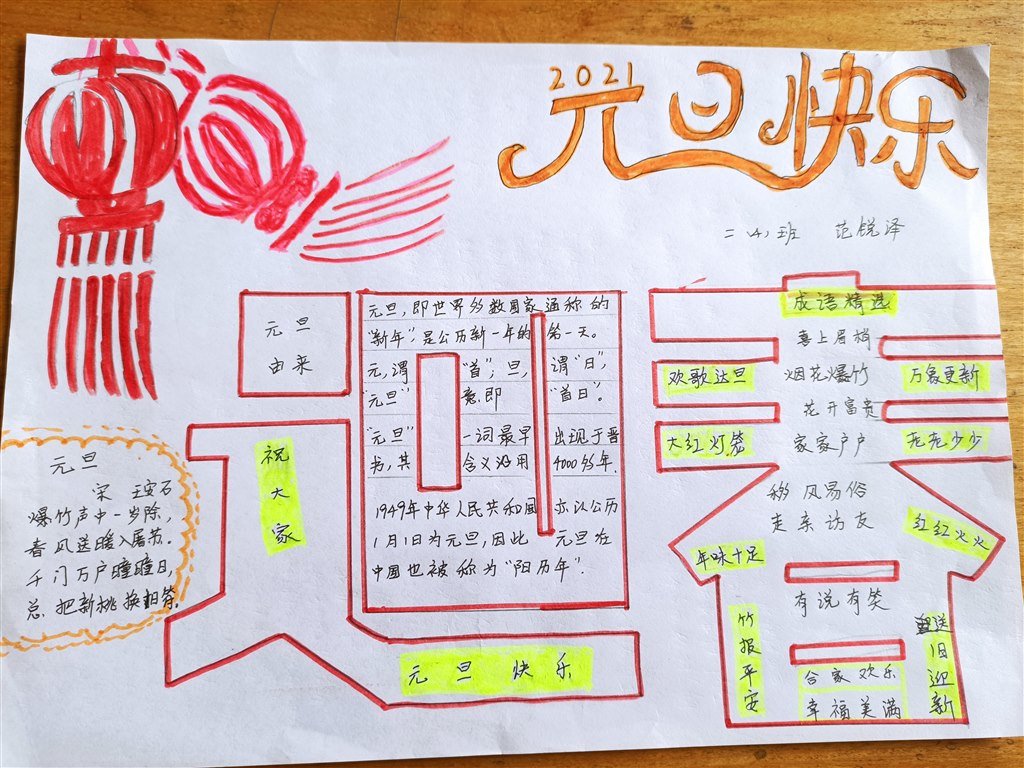 2021
元旦快乐
二(4)班 范锐泽
元旦
由来
元旦,即世界多数国家通称的
"新年",是公历新一年的第一天。
元,谓"首";旦,谓"日",
"元旦"意即"首日"。
"元旦"一词最早出现于晋
书,其含义沿用4000多年.
1949年中华人民共和国亦以公历
1月1日为元旦,因此元旦在
中国也被称为"阳历年".
祝大家
元旦快乐
元旦
宋 王安石
爆竹声中一岁除,
春风送暖入屠苏.
千门万户曈曈日,
总把新桃换旧符.
成语精选
喜上眉梢
欢歌达旦 烟花爆竹 万象更新
花开富贵
大红灯笼 家家户户 老老少少
移风易俗
走亲访友
年味十足
红红火火
有说有笑
竹报平安
送旧迎新
合家欢乐
幸福美满